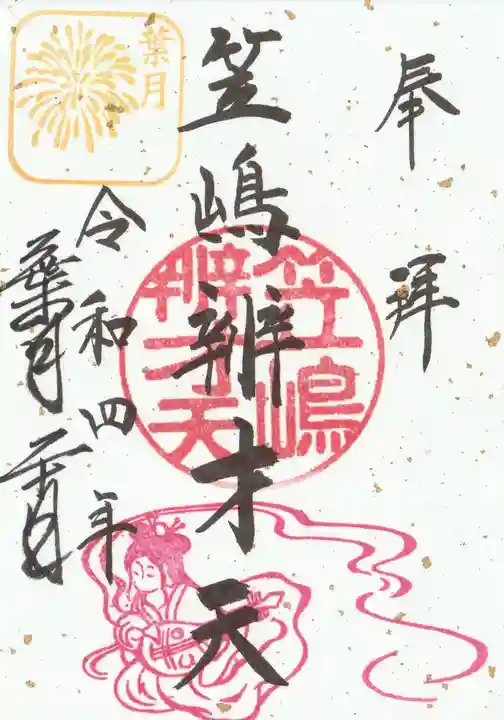 奉拝
笠嶋辨才天
笠嶋
辨才天
葉月
令和四年
葉月